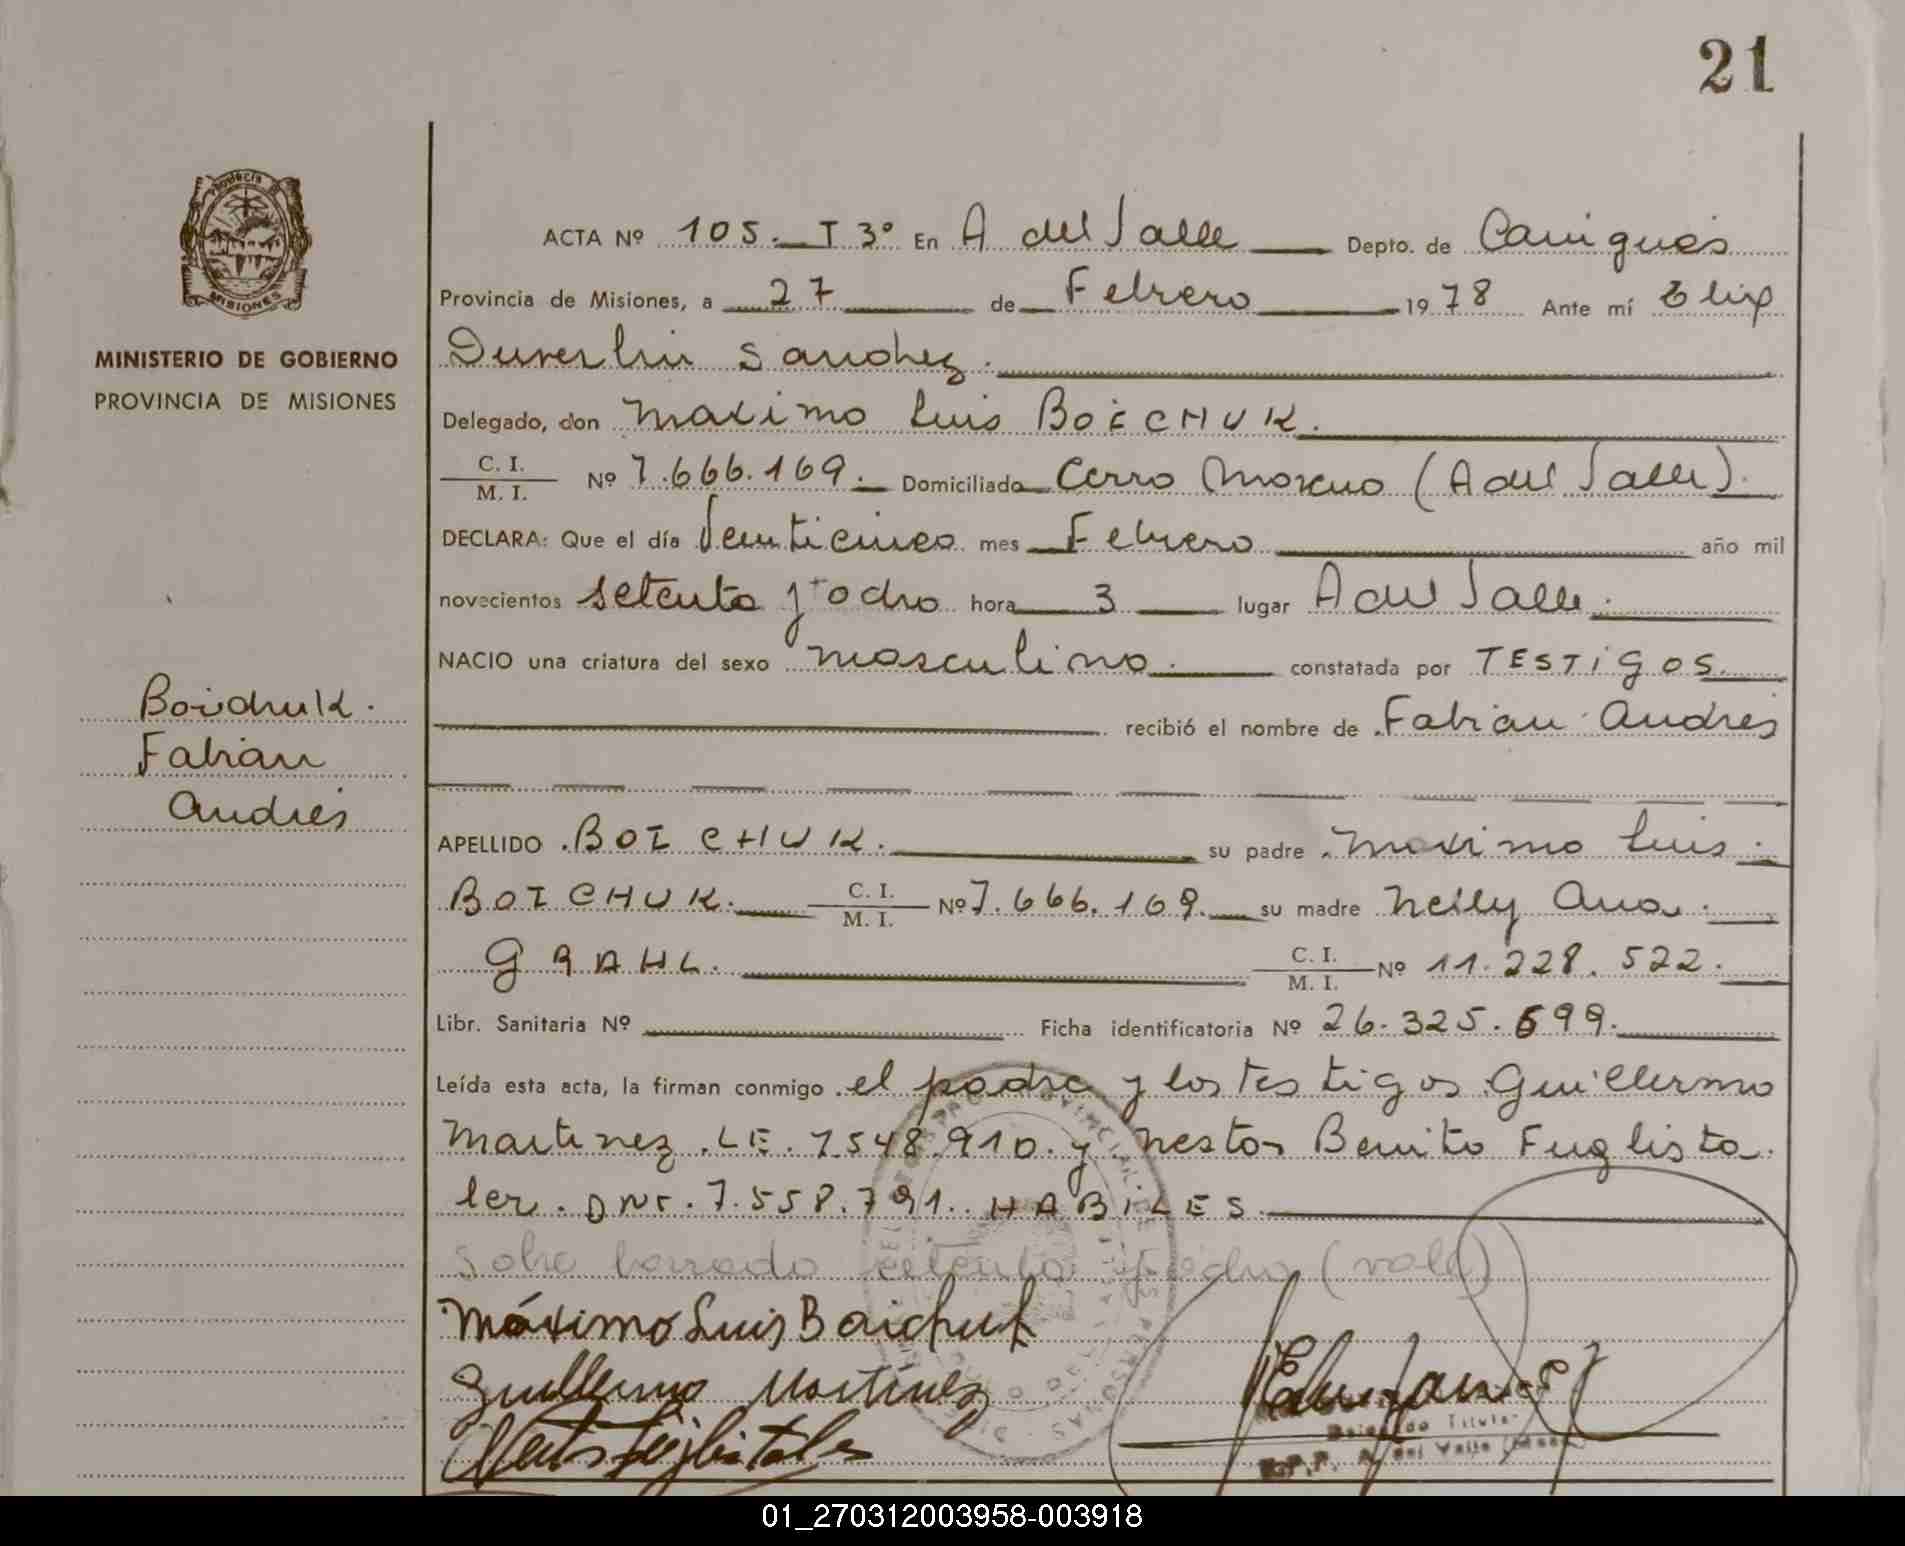 21
PROVINCIA DE
MISIONES
MINISTERIO DE GOBIERNO
PROVINCIA DE MISIONES
Boichuk.
Fabian
Andrés
ACTA Nº 105. T 3º En A del Valle Depto. de Cainguás
Provincia de Misiones, a 27 de Febrero 1978 Ante mí
Sanchez.
Delegado, don Maximo Luis BOICHUK.
C. I. / M. I. Nº 7.666.169. Domiciliado Cerro Moreno (A del Valle).
DECLARA: Que el día Veinticinco mes Febrero año mil
novecientos setenta y ocho hora 3 lugar A del Valle.
NACIO una criatura del sexo masculino. constatada por TESTIGOS.
recibió el nombre de Fabian Andrés
APELLIDO BOICHUK. su padre Maximo Luis
BOICHUK. C. I. / M. I. Nº 7.666.169. su madre Nelly Ana
GRAHL. C. I. / M. I. Nº 11.228.522.
Libr. Sanitaria Nº Ficha identificatoria Nº 26.325.699.
Leída esta acta, la firman conmigo el padre y los testigos Guillermo
Martinez. LE. 7.548.910. y Nestor Benito Fuglista
ler. DNI. 7.558.791. HABILES.
Sobre borrado setenta y ocho (vale)
Máximo Luis Boichuk
Guillermo Martínez
Delegado Titular
A. del Valle
01_270312003958-003918